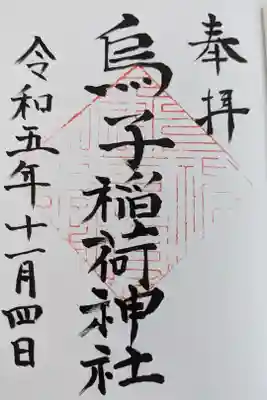 奉拝
烏子稲荷神社
令和五年十一月四日